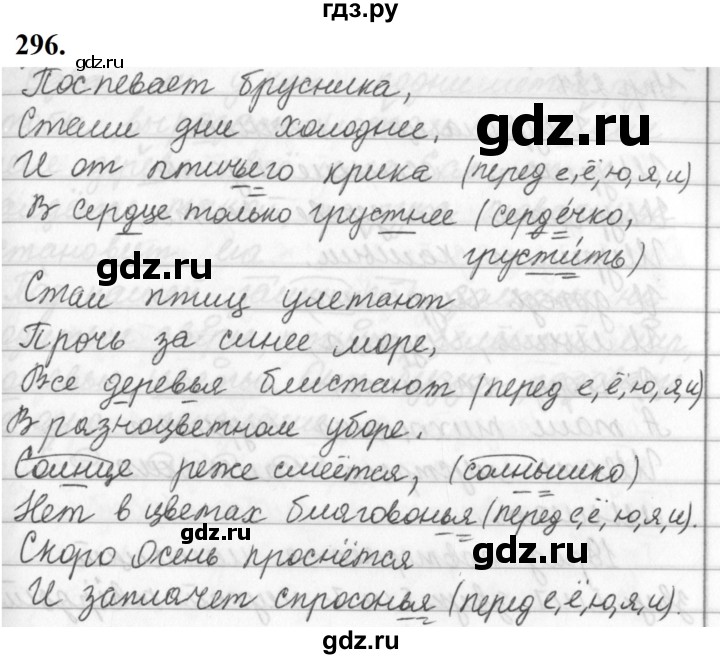 гдз.ру
296.
Поспевает брусника,
Стали дни холоднее,
И от птичьего крика (перед е,ё,ю,я,и)
В сердце только грустнее (сердечко,
грустить)
Стаи птиц улетают
Прочь за синее море,
Все деревья блистают (перед е,ё,ю,я,и)
В разноцветном уборе.
Солнце реже смеётся, (солнышко)
Нет в цветах благовонья (перед е,ё,ю,я,и).
Скоро Осень проснётся
И заплачет спросонья (перед е,ё,ю,я,и).
gdz.ru
gdz.ru
gdz.ru
gdz.ru
gdz.ru